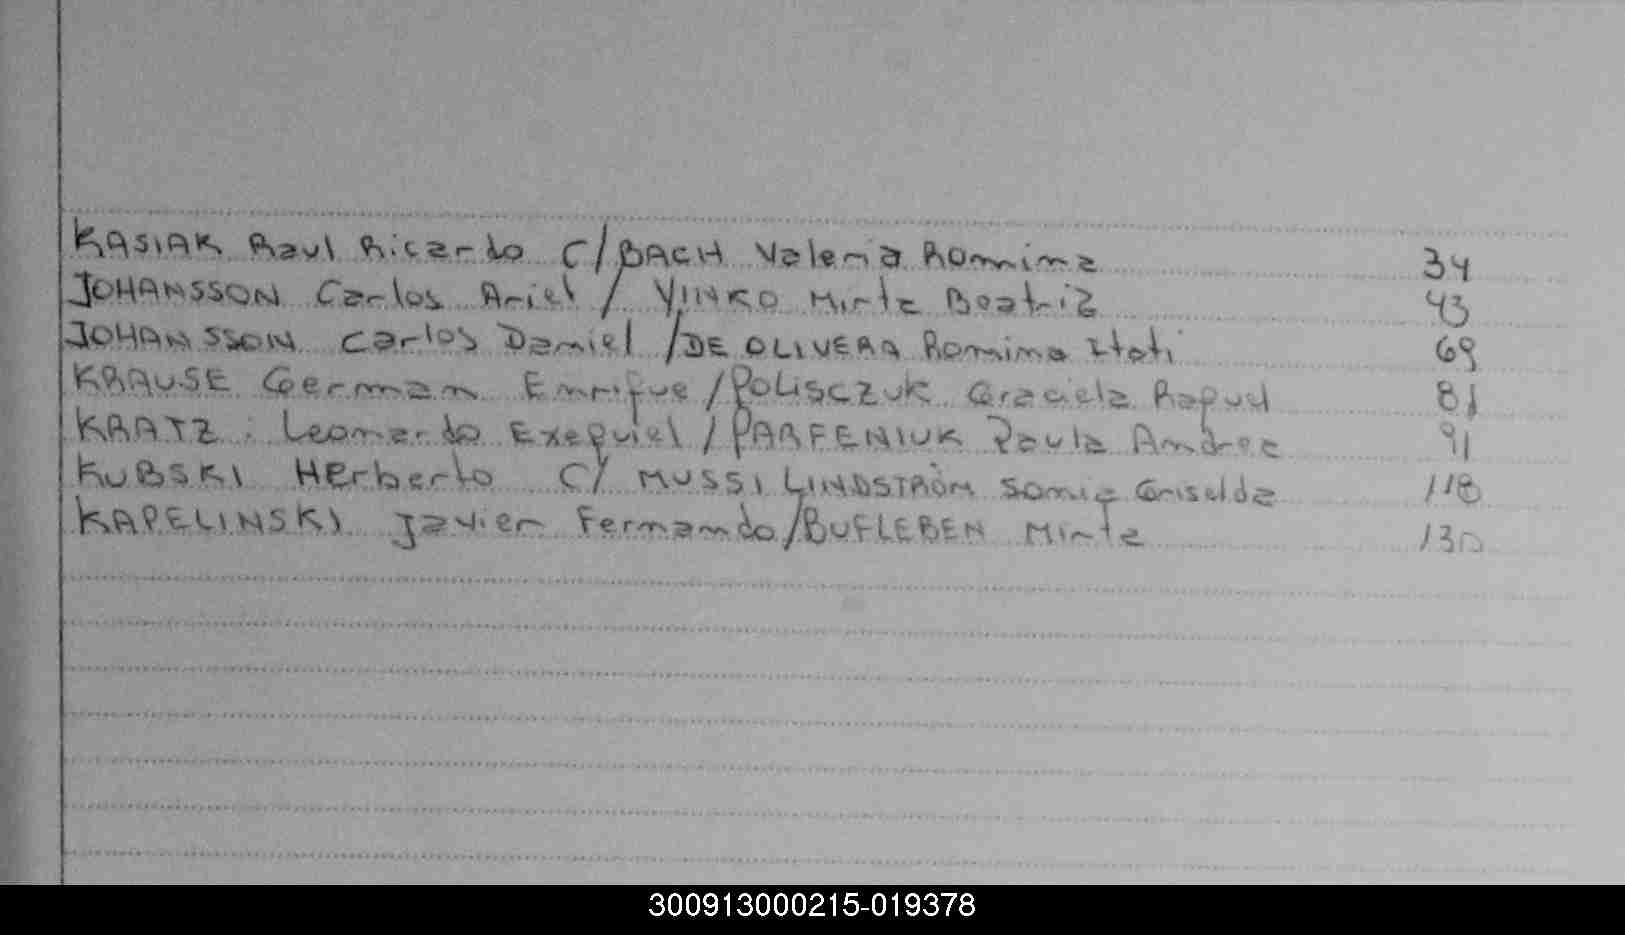 KASIAK Raul Ricardo C/BACH Valeria Romina 34
JOHANSSON Carlos Ariel / YINKO Mirta Beatriz 43
JOHANSSON Carlos Daniel /DE OLIVERA Romina Itati 69
KRAUSE German Enrique /POLISCZUK Graciela Raquel 81
KRATZ Leonardo Exequiel /PARFENIUK Paula Andrea 91
KUBSKI HErberto C/ MUSSI LINDSTRÖM Sonia Griselda 118
KAPELINSKI Javier Fernando/BUFLEBEN Mirta 130
300913000215-019378